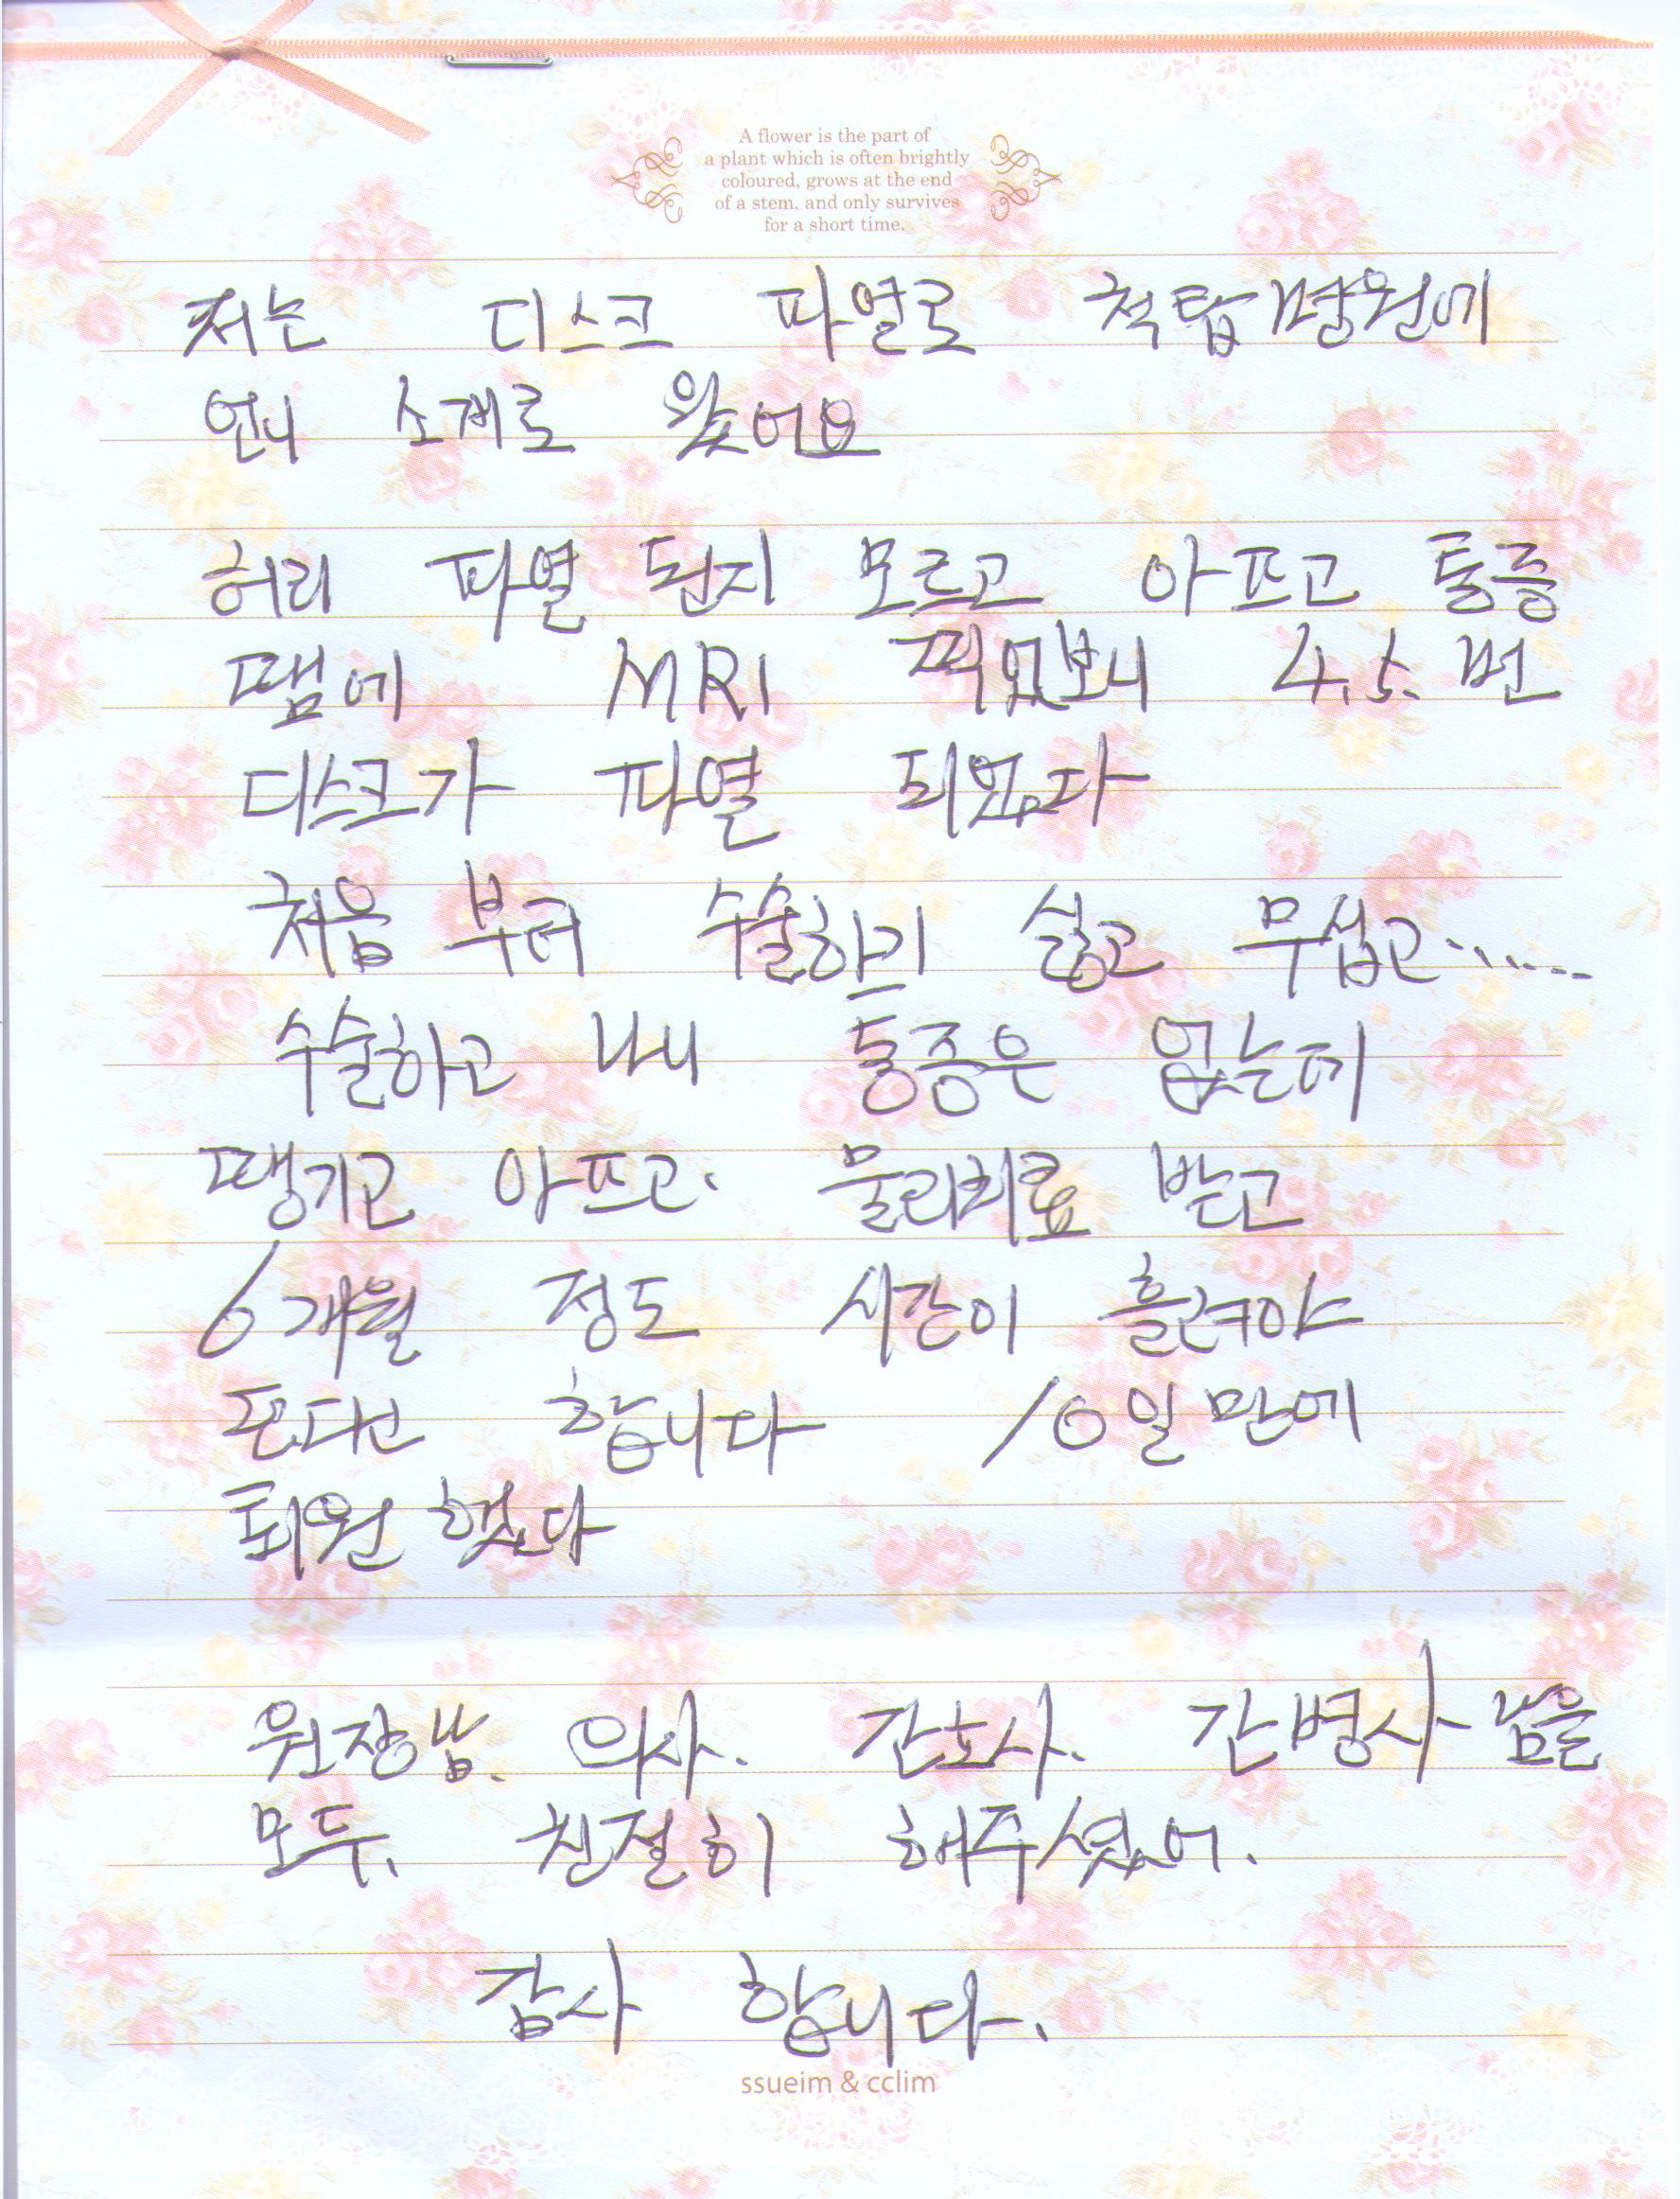 A flower is the part of
a plant which is often brightly
coloured, grows at the end
of a stem, and only survives
for a short time.
저는 디스크 파열로 척탑병원에
언니 소개로 왔어요
허리 파열 된지 모르고 아프고 통증
땜에 MRI 찍었보니 4.5. 번
디스크가 파열 되었다
처음 부터 수술하기 싫고 무섭고......
수술하고 나니 통증은 없는데
땡기고 아프고. 물리치료 받고
6개월 정도 시간이 흘려야
된다고 합니다 10일만에
퇴원 했다
원장님. 의사. 간호사. 간병사님은
모두. 친절히 해주셨어.
감사 합니다.
ssueim & cclim